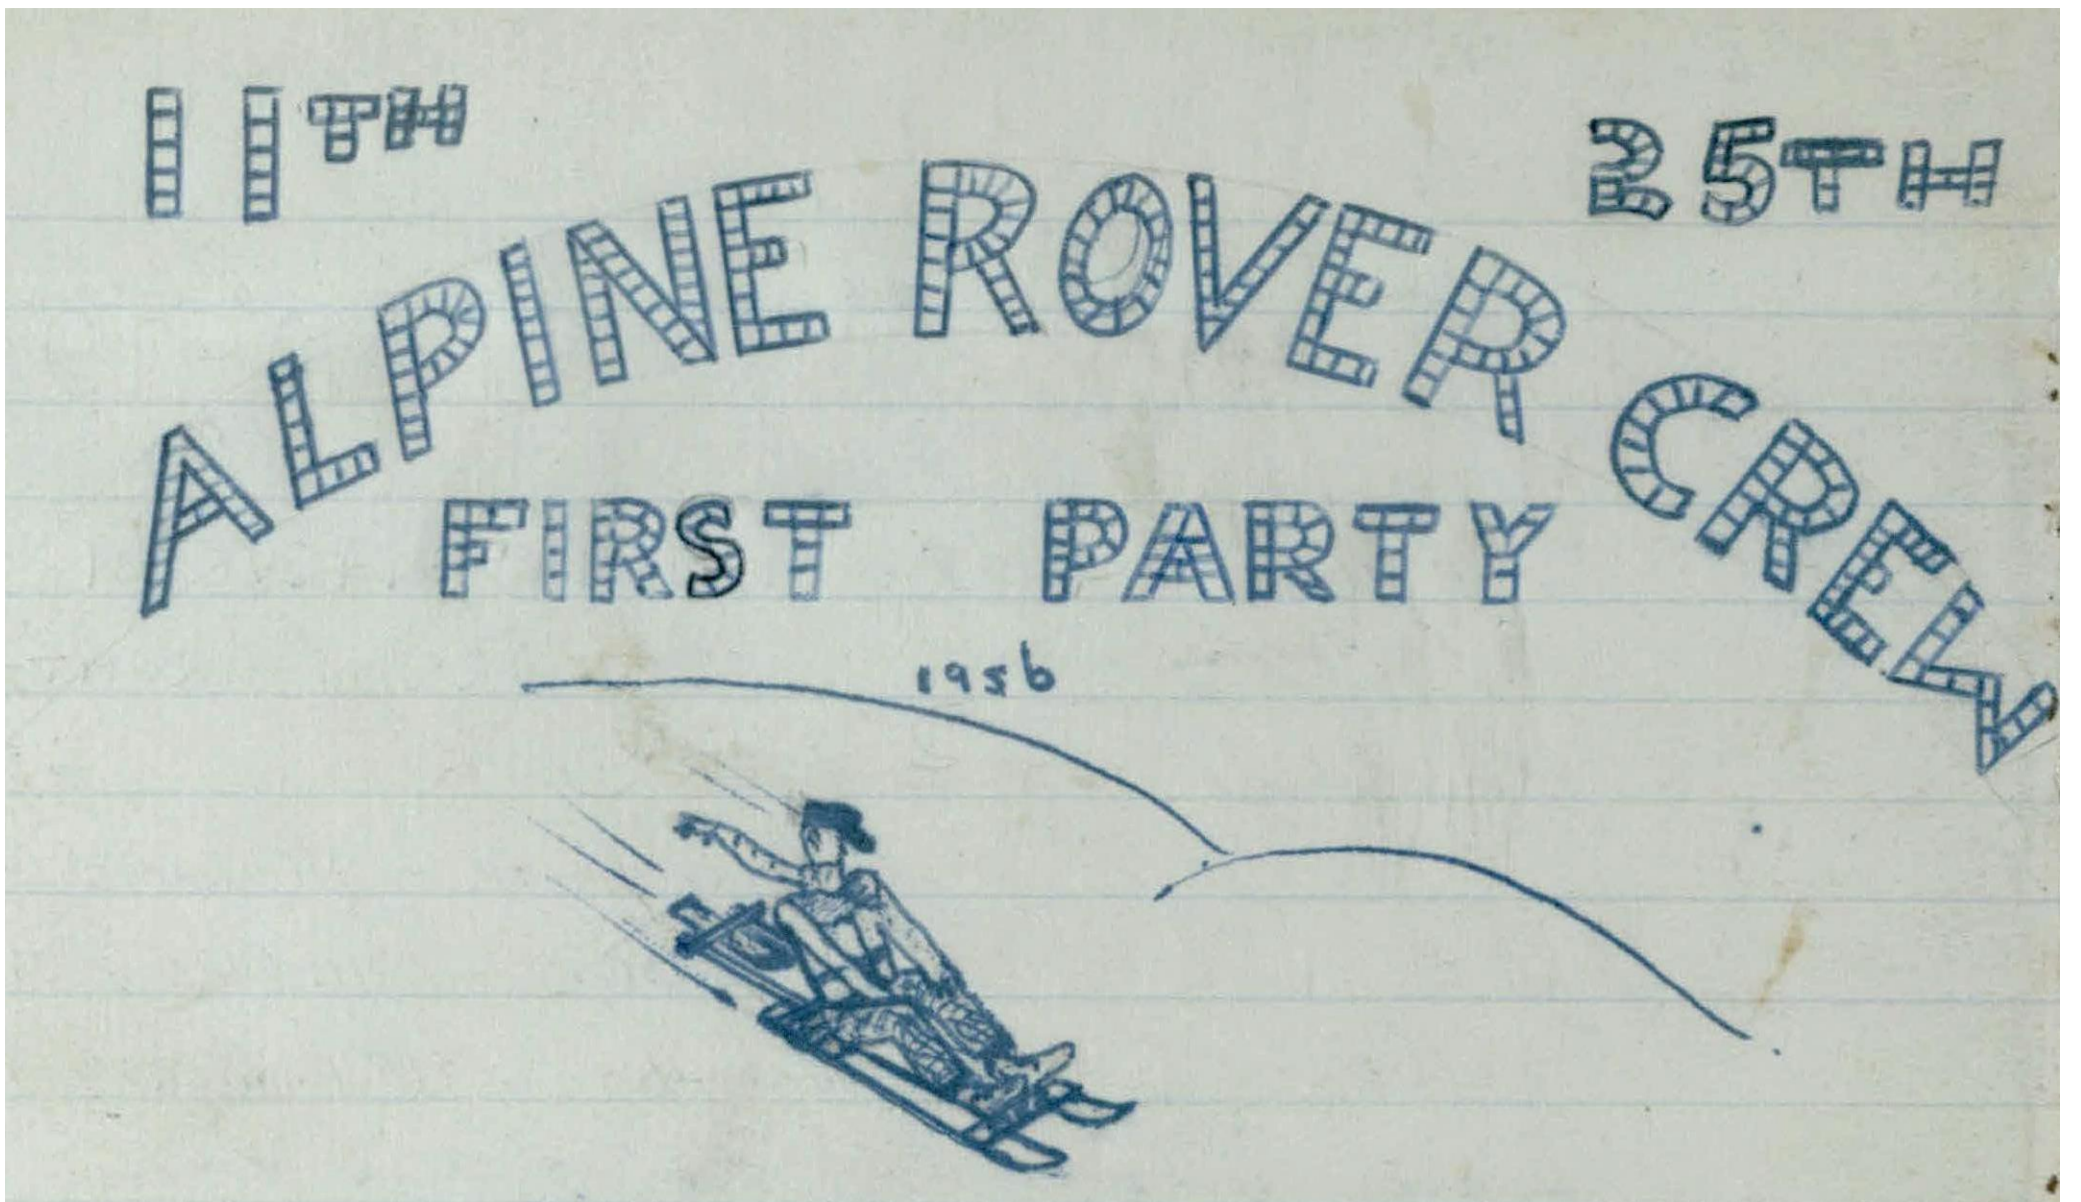 11TH 25TH
ALPINE ROVER CREW
FIRST PARTY
1956